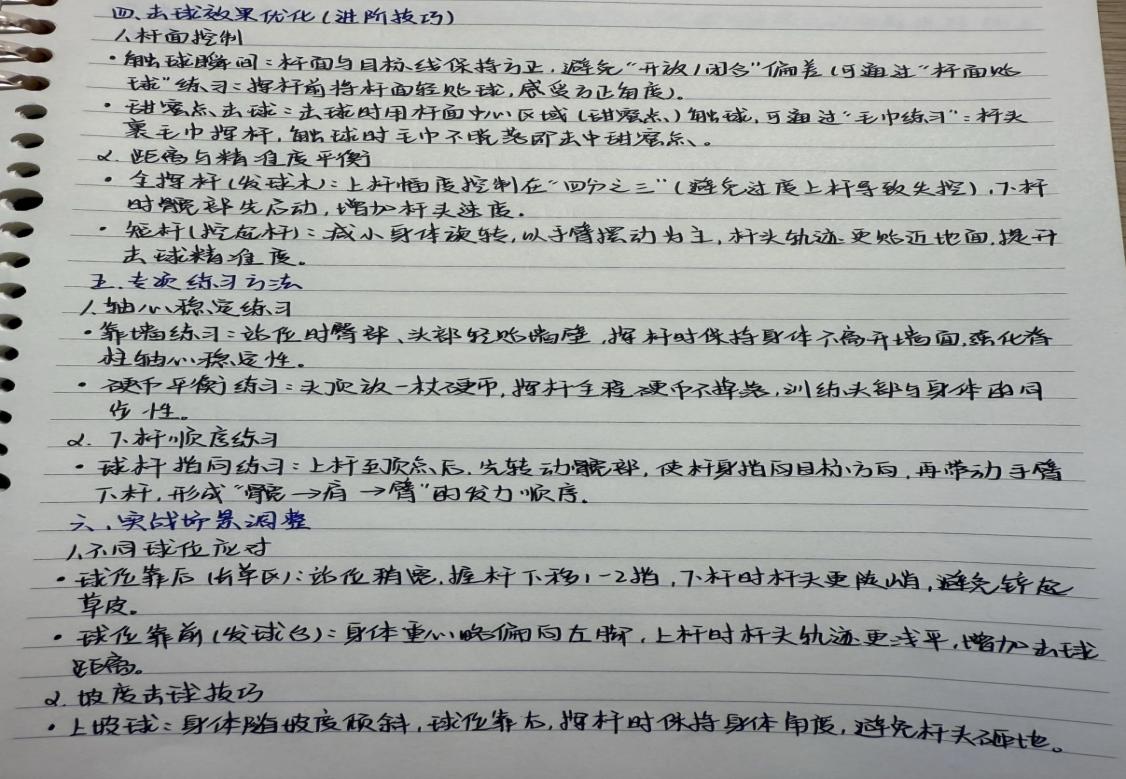 四.击球效果优化(进阶技巧)
1.杆面控制
·触球瞬间:杆面与目标线保持方正,避免“开放/闭合”偏差(可通过“杆面贴
球”练习:挥杆前将杆面轻贴球,感受方正角度)。
·甜蜜点击球:击球时用杆面中心区域(甜蜜点)触球,可通过“毛巾练习”:杆头
裹毛巾挥杆,触球时毛巾不脱落即击中甜蜜点。
2.距离与精准度平衡
·全挥杆(发球木):上杆幅度控制在“四分之三”(避免过度上杆导致失控),下杆
时髋部先启动,增加杆头速度。
·短杆(挖起杆):减小身体旋转,以手臂摆动为主,杆头轨迹更贴近地面,提升
击球精准度。
五.专项练习方法
1.轴心稳定练习
·靠墙练习:站位时臀部、头部轻贴墙壁,挥杆时保持身体不离开墙面,强化脊
柱轴心稳定性。
·硬币平衡练习:头顶放一枚硬币,挥杆全程硬币不掉落,训练头部与身体的同
步性。
2.下杆顺序练习
·球杆指向练习:上杆至顶点后,先转动髋部,使杆身指向目标方向,再带动手臂
下杆,形成“髋→肩→臂”的发力顺序。
六.实战场景调整
1.不同球位应对
·球位靠后(长草区):站位稍宽,握杆下移1-2指,下杆时杆头更陡峭,避免铲起
草皮。
·球位靠前(发球台):身体重心略偏向左脚,上杆时杆头轨迹更浅平,增加击球
距离。
2.坡度击球技巧
·上坡球:身体随坡度倾斜,球位靠右,挥杆时保持身体角度,避免杆头砸地。